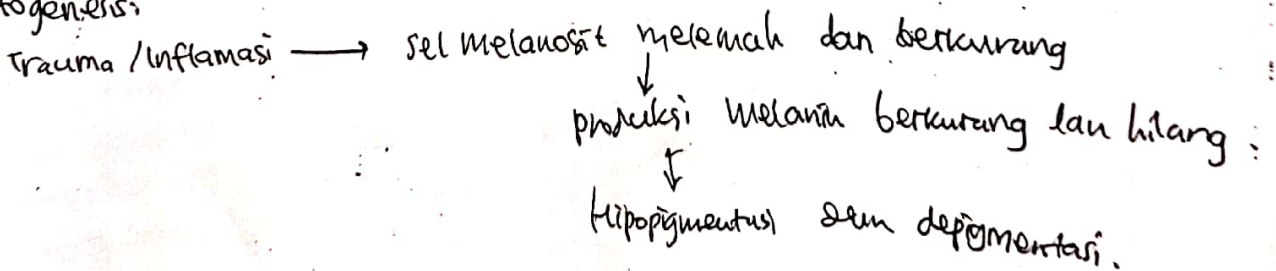 togenesis:
Trauma / Inflamasi → sel melanosit melemah dan berkurang
↓
produksi melanin berkurang lau hilang :
↓
Hipopigmentasi dan depigmentasi.